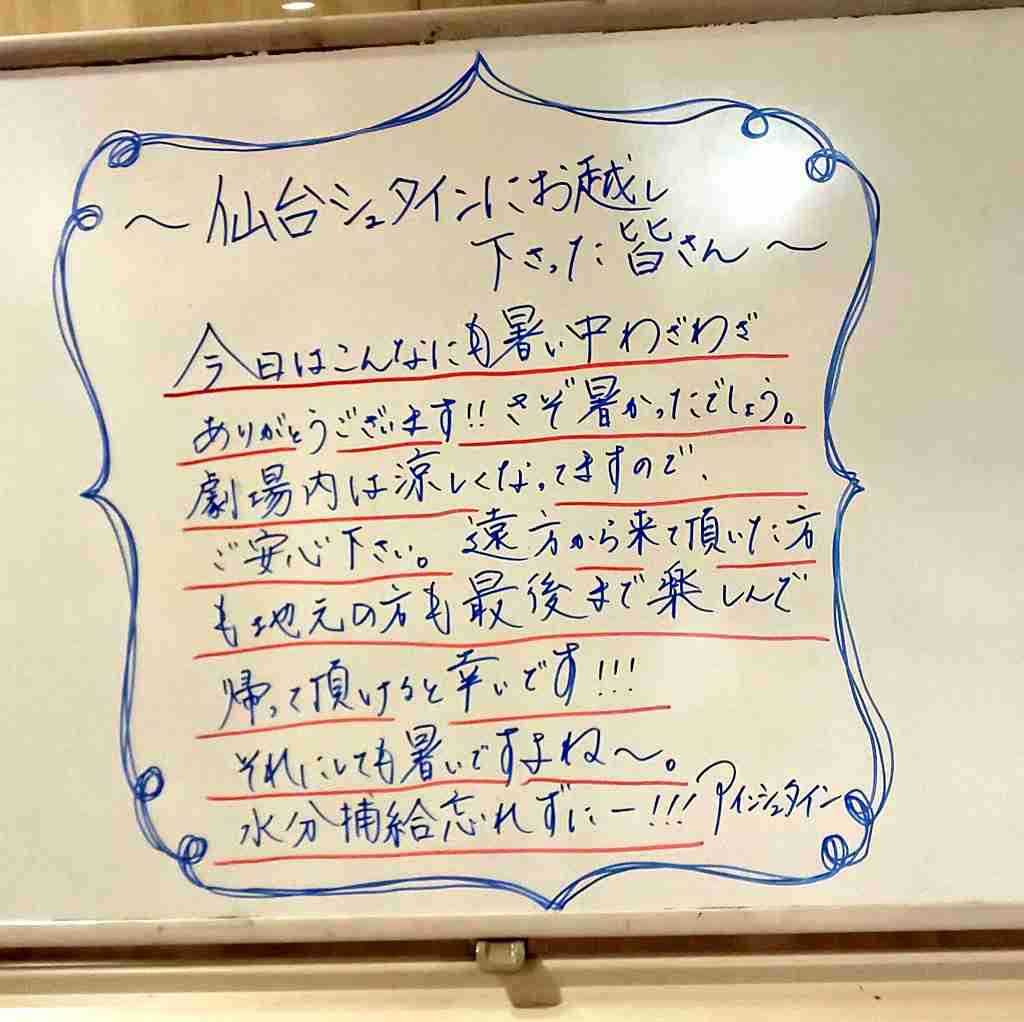 ～仙台シュタインにお越し
下さった皆さん～
今日はこんなにも暑い中わざわざ
ありがとうございます!!さぞ暑かったでしょう。
劇場内は涼しくなってますので、
ご安心下さい。遠方から来て頂いた方
も地元の方も最後まで楽しんで
帰って頂けると幸いです!!!
それにしても暑いですよね～。
水分補給忘れずにー!!! アインシュタイン